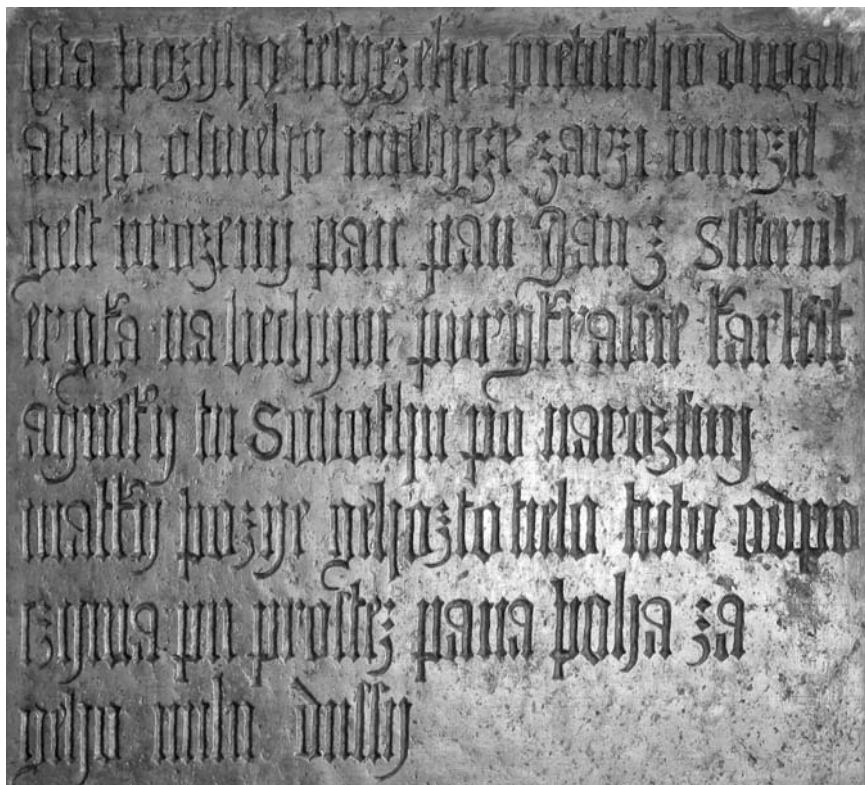 leta bozyho tesyczeho pietisteho dwan
ateho osmeho miesycze zarzi vmrzel
gest urozeny pan pan Jan z Ssternb
ergka na bechyni purgkrabie karlsst
aynsky tu Subothu po narozeny
matky bozye gehozto tielo tuto odpo
czywa pn prostez pana boha za
geho milu dussy